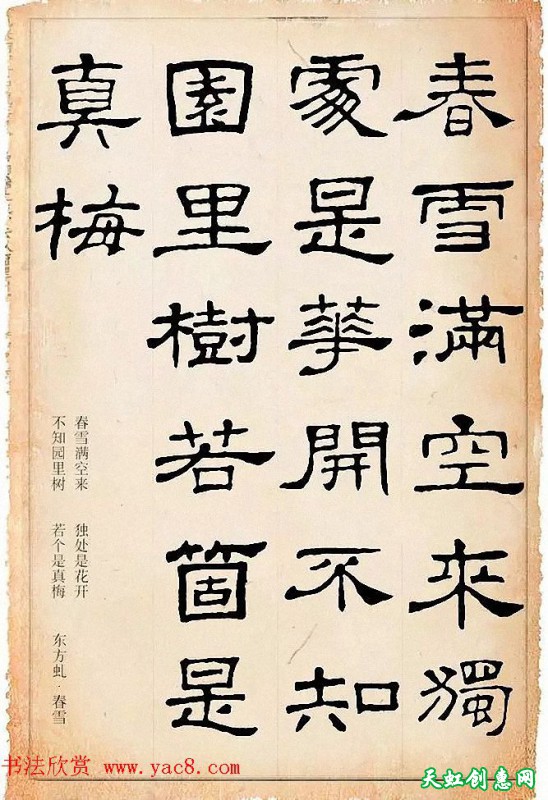 春雪滿空來獨
處是華開不知
園里樹若箇是
真梅
春雪满空来 独处是花开
不知园里树 若个是真梅 东方虬·春雪
书法欣赏 www.yac8.com
天虹创惠网